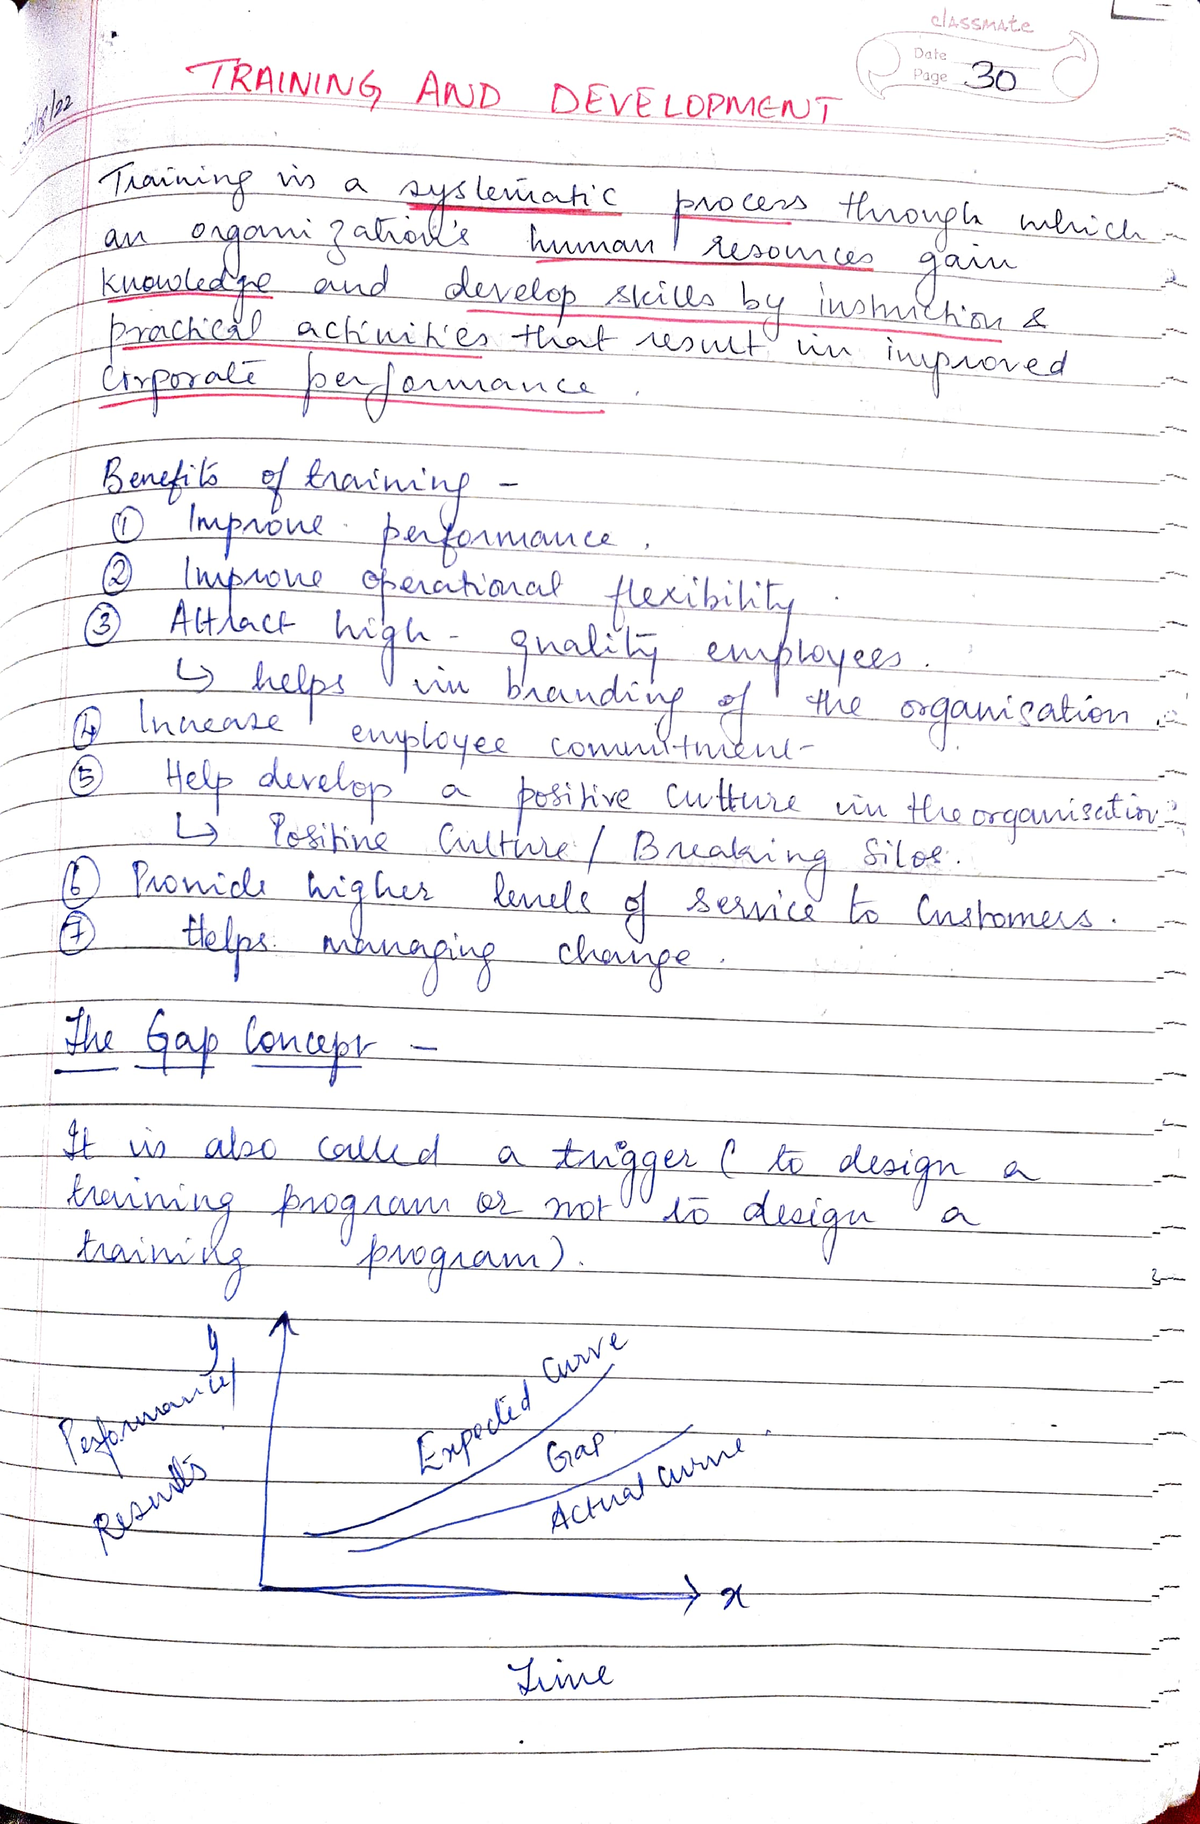 classmate
Date
Page 30
TRAINING AND DEVELOPMENT
Training is a systematic process through which
an organization's human resources gain
knowledge and develop skills by instruction &
practical activities that result in improved
Corporate performance.
Benefits of training -
① Improve performance.
② Improve operational flexibility.
③ Attract high-quality employees.
↳ helps in branding of the organisation.
④ Increase employee commitment
⑤ Help develop a positive culture in the organisation
↳ Positive Culture / Breaking Silos.
⑥ Provide higher levels of service to Customers.
⑦ Helps managing change.
The Gap Concept -
It is also called a trigger (to design a
training program or not to design a
training program).
y
Performance/
Results
Expected Curve
Gap
Actual curve.
x
Time